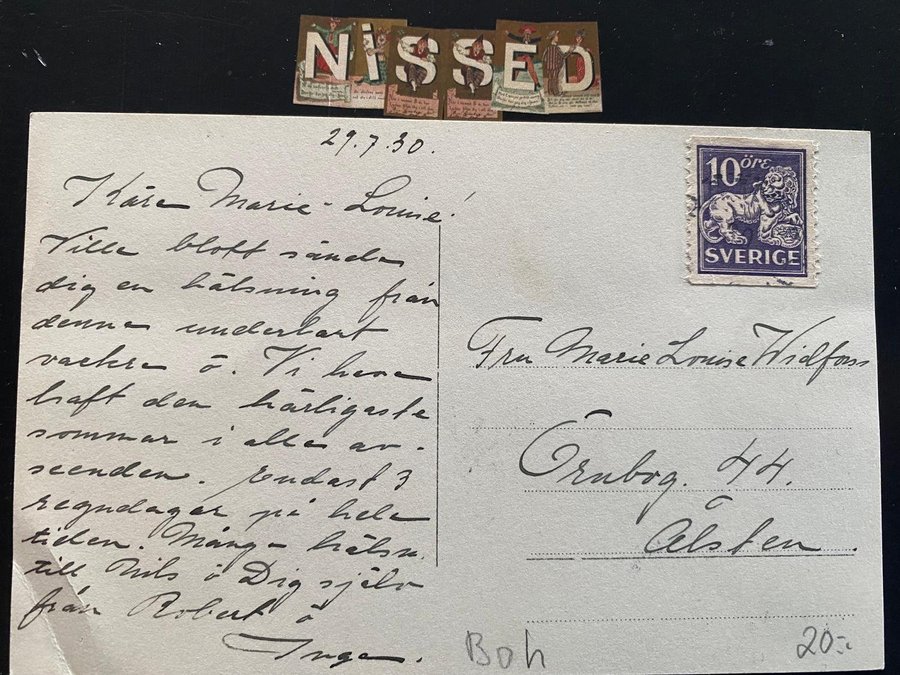 NISSED
29.7.30.
Kära Marie-Louise!
Ville blott sända
dig en hälsning från
denna underbart
vackra ö. Vi hava
haft den härligaste
sommar i alla av-
seenden. Endast 3
regndagar på hela
tiden. Många hälsn.
till Nils o Dig själv
från Robert o
Inga.
10 öre
SVERIGE
Fru Marie Louise Widforss
Örnbog. 44.
Ålsten.
Boh
20:-